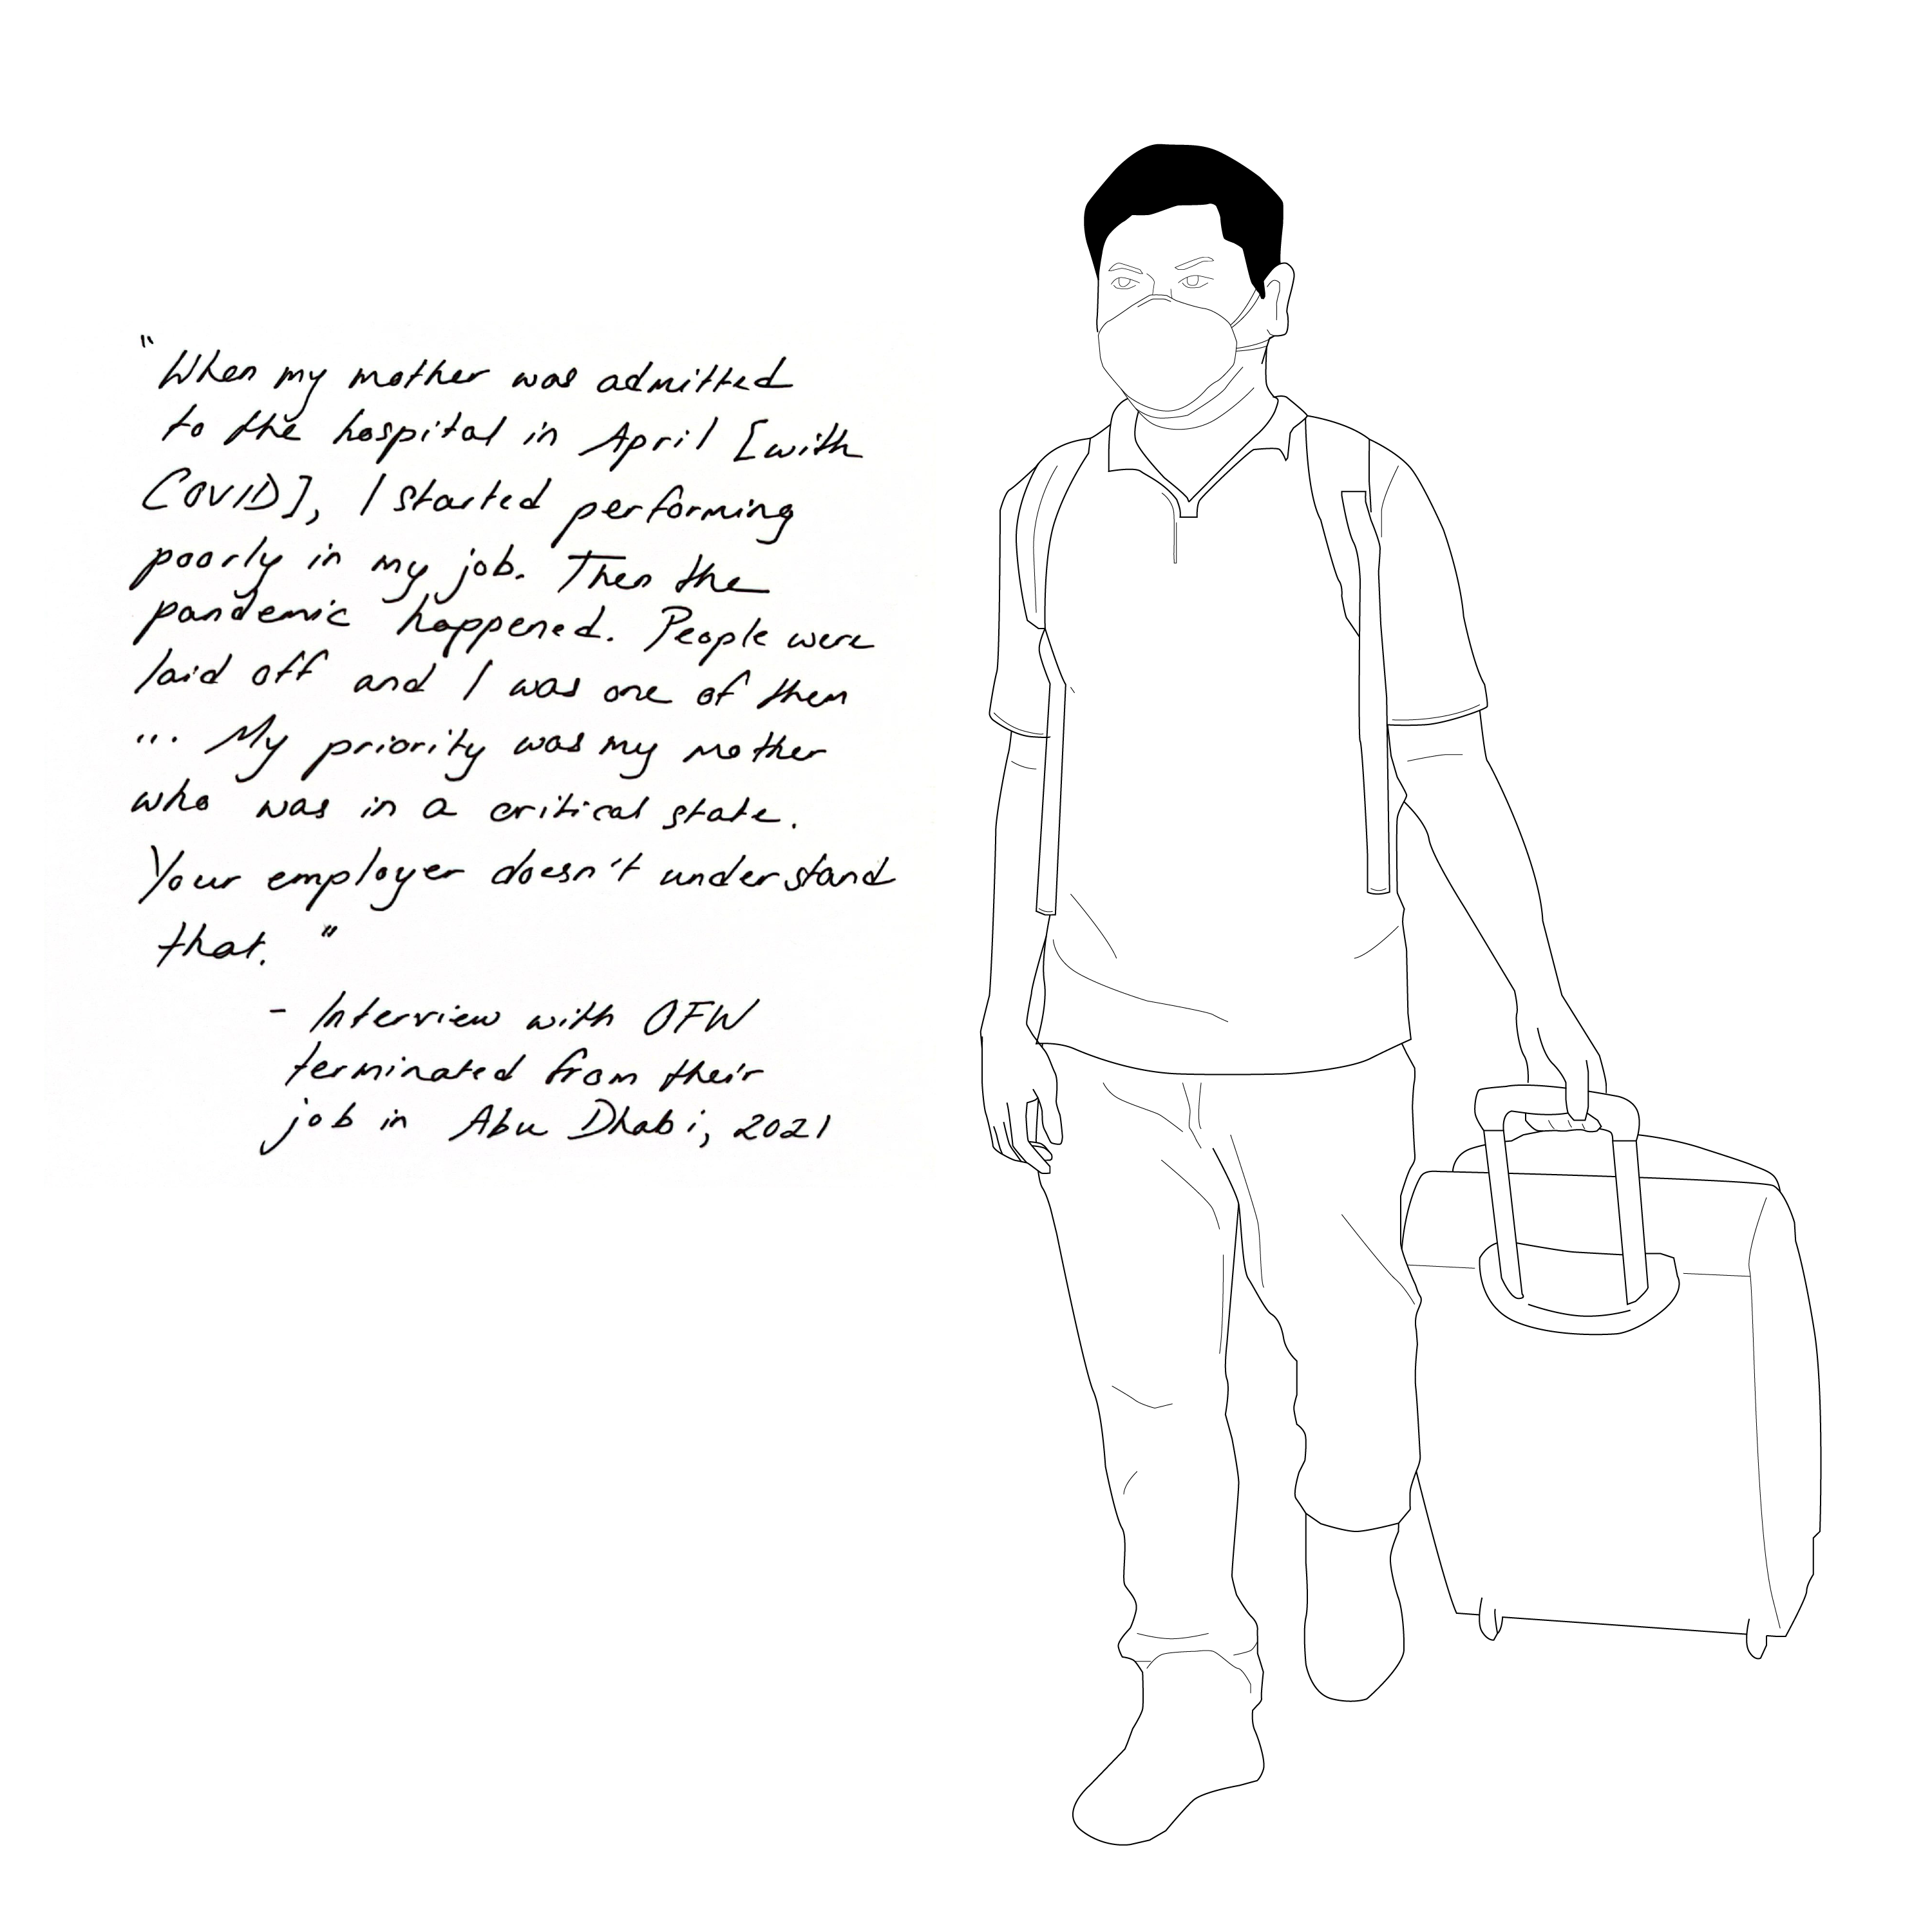 "When my mother was admitted
to the hospital in April [with
COVID], I started performing
poorly in my job. Then the
pandemic happened. People were
laid off and I was one of them
... My priority was my mother
who was in a critical state.
Your employer doesn't understand
that."
- Interview with OFW
terminated from their
job in Abu Dhabi, 2021